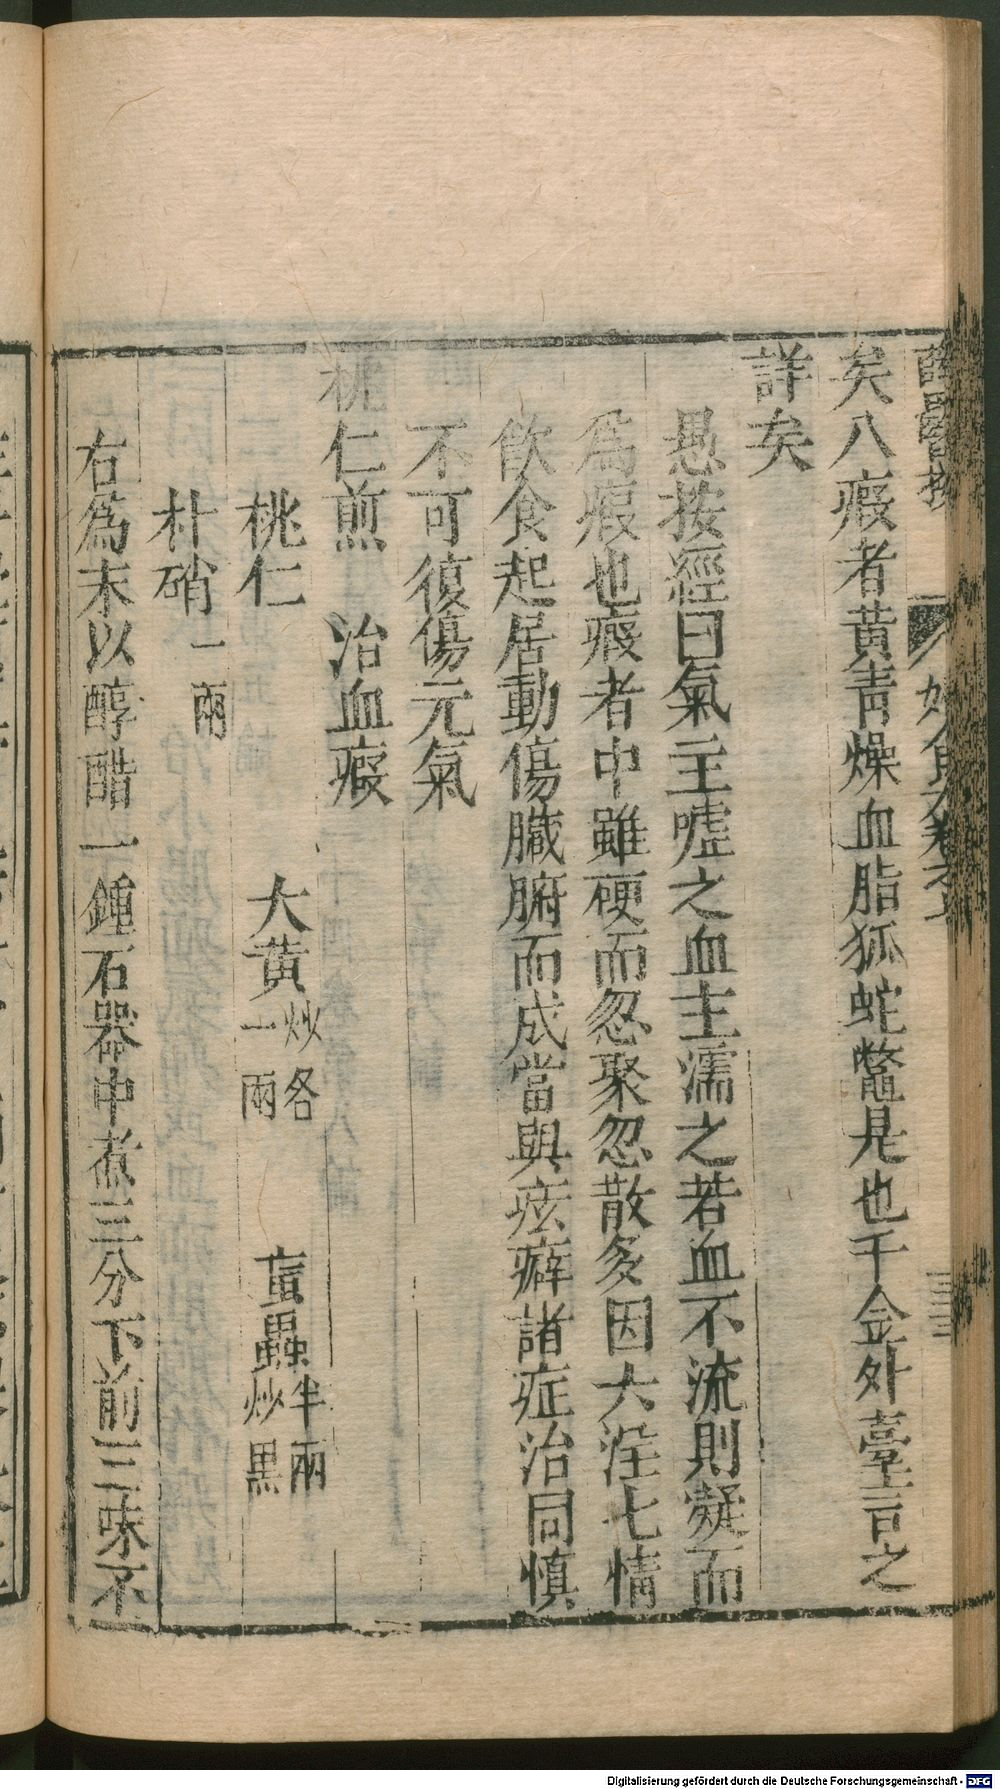 薛氏醫按 婦人良方卷之七
矣八瘕者黃青燥血脂狐蛇鱉是也千金外臺言之
詳矣
愚按經曰氣主噓之血主濡之若血不流則凝而
爲瘕也瘕者中雖硬而忽聚忽散多因六淫七情
飲食起居動傷臟腑而成當與痃癖諸症治同慎
不可復傷元氣
桃仁煎 治血瘕
桃仁 大黃炒各一兩 䖟蟲半兩炒黑
朴硝一兩
右爲末以醇醋一鍾石器中煮三分下前三味不
Digitalisierung gefördert durch die Deutsche Forschungsgemeinschaft - DFG